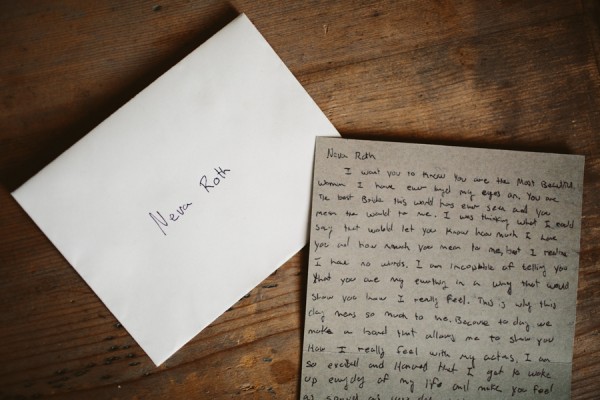 Neva Roth
Neva Roth
I want you to know you are the Most Beautiful
woman I have ever layed my eyes on. You are
The best Bride this world has ever seen and you
mean the world to me. I was thinking what I could
say that would let you know how much I love
you and how much you mean to me, but I realize
I have no words. I am incapable of telling you
that you are my everthing in a way that would
show you how I really feel. This is why this
day means so much to me. Because today we
make a bond that allows me to show you
How I really feel with my actns. I am
so excited and Honored that I get to wake
up everyday of my life and make you feel
as special as